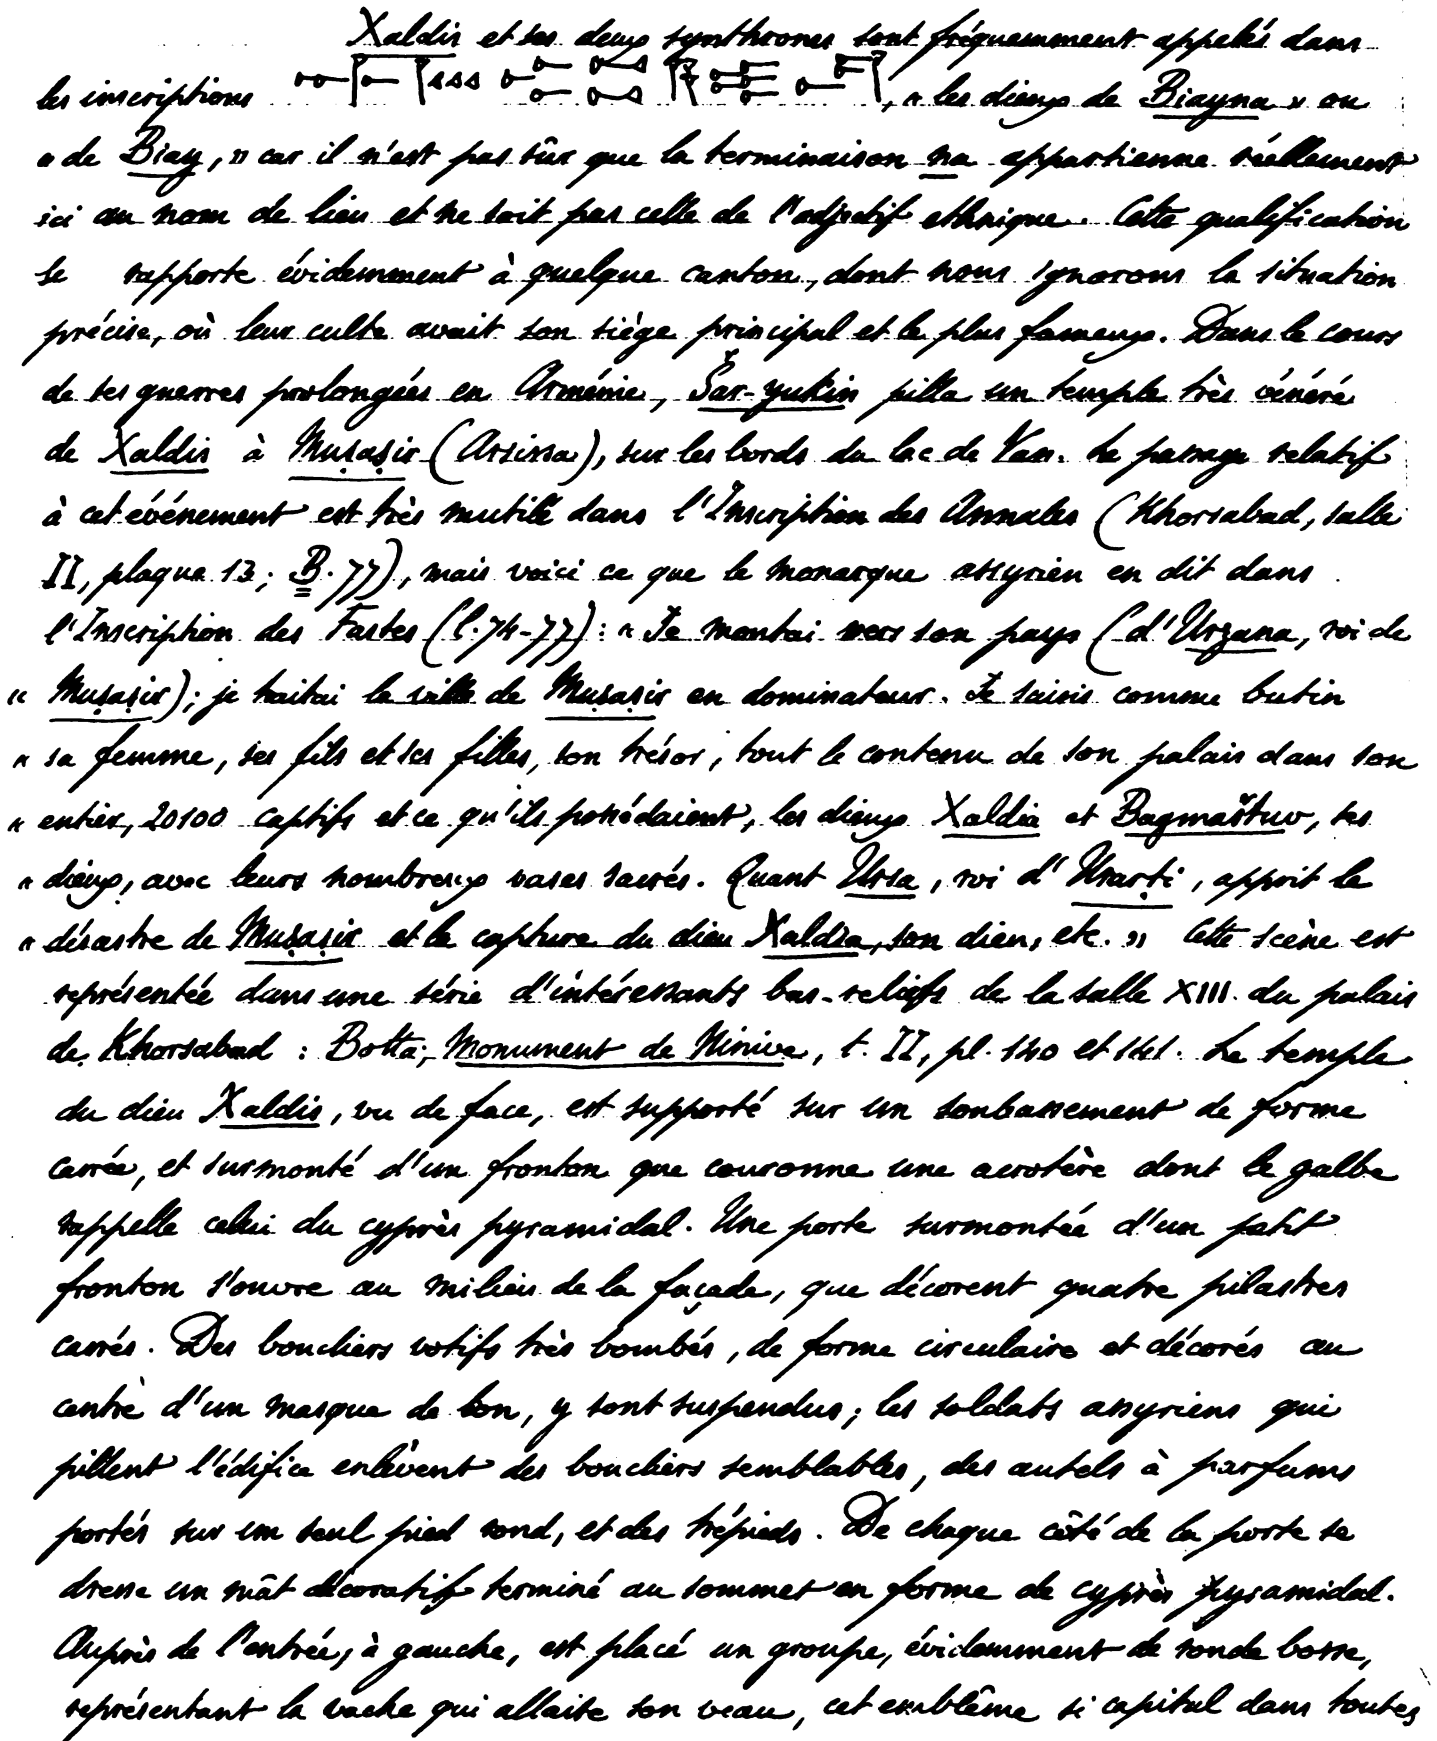 Xaldis et ses deux synthrones sont fréquemment appelés dans
les inscriptions , « les dieux de Biayna » ou
« de Biay, » car il n'est pas sûr que la terminaison na appartienne réellement
ici au nom de lieu et ne soit pas celle de l'adjectif ethnique. Cette qualification
se rapporte évidemment à quelque canton, dont nous ignorons la situation
précise, où leur culte avait son siége principal et le plus fameux. Dans le cours
de ses guerres prolongées en Arménie, Šar-yukin pilla un temple très vénéré
de Xaldis à Muṣaṣir (Arsissa), sur les bords du lac de Van. Le passage relatif
à cet événement est très mutilé dans l'Inscription des Annales (Khorsabad, salle
II, plaque 13; B. 77), mais voici ce que le monarque assyrien en dit dans
l'Inscription des Fastes (l. 74-77): « Je montai vers son pays (d'Urzana, roi de
« Muṣaṣir); je traitai la ville de Muṣaṣir en dominateur. Je saisis comme butin
« sa femme, ses fils et ses filles, son trésor, tout le contenu de son palais dans son
« entier, 20100 captifs et ce qu'ils possédaient, les dieux Xaldia et Bagmaštuv, ses
« dieux, avec leurs nombreux vases sacrés. Quant Ursa, roi d'Urarṭi, apprit le
« désastre de Muṣaṣir et la capture du dieu Xaldia, son dieu, etc. » Cette scène est
représentée dans une série d'intéressants bas-reliefs de la salle XIII. du palais
de Khorsabad : Botta, Monument de Ninive, t. II, pl. 140 et 141. Le temple
du dieu Xaldis, vu de face, est supporté sur un soubassement de forme
carrée, et surmonté d'un fronton que couronne une acrotère dont le galbe
rappelle celui du cyprès pyramidal. Une porte surmontée d'un petit
fronton s'ouvre au milieu de la façade, que décorent quatre pilastres
carrés. Des boucliers votifs très bombés, de forme circulaire et décorés au
centre d'un masque de lion, y sont suspendus; les soldats assyriens qui
pillent l'édifice enlèvent des boucliers semblables, des autels à parfums
portés sur un seul pied rond, et des trépieds. De chaque côté de la porte se
dresse un mât décoratif terminé au sommet en forme de cyprès pyramidal.
Auprès de l'entrée, à gauche, est placé un groupe, évidemment de ronde bosse,
représentant la vache qui allaite son veau, cet emblême si capital dans toutes